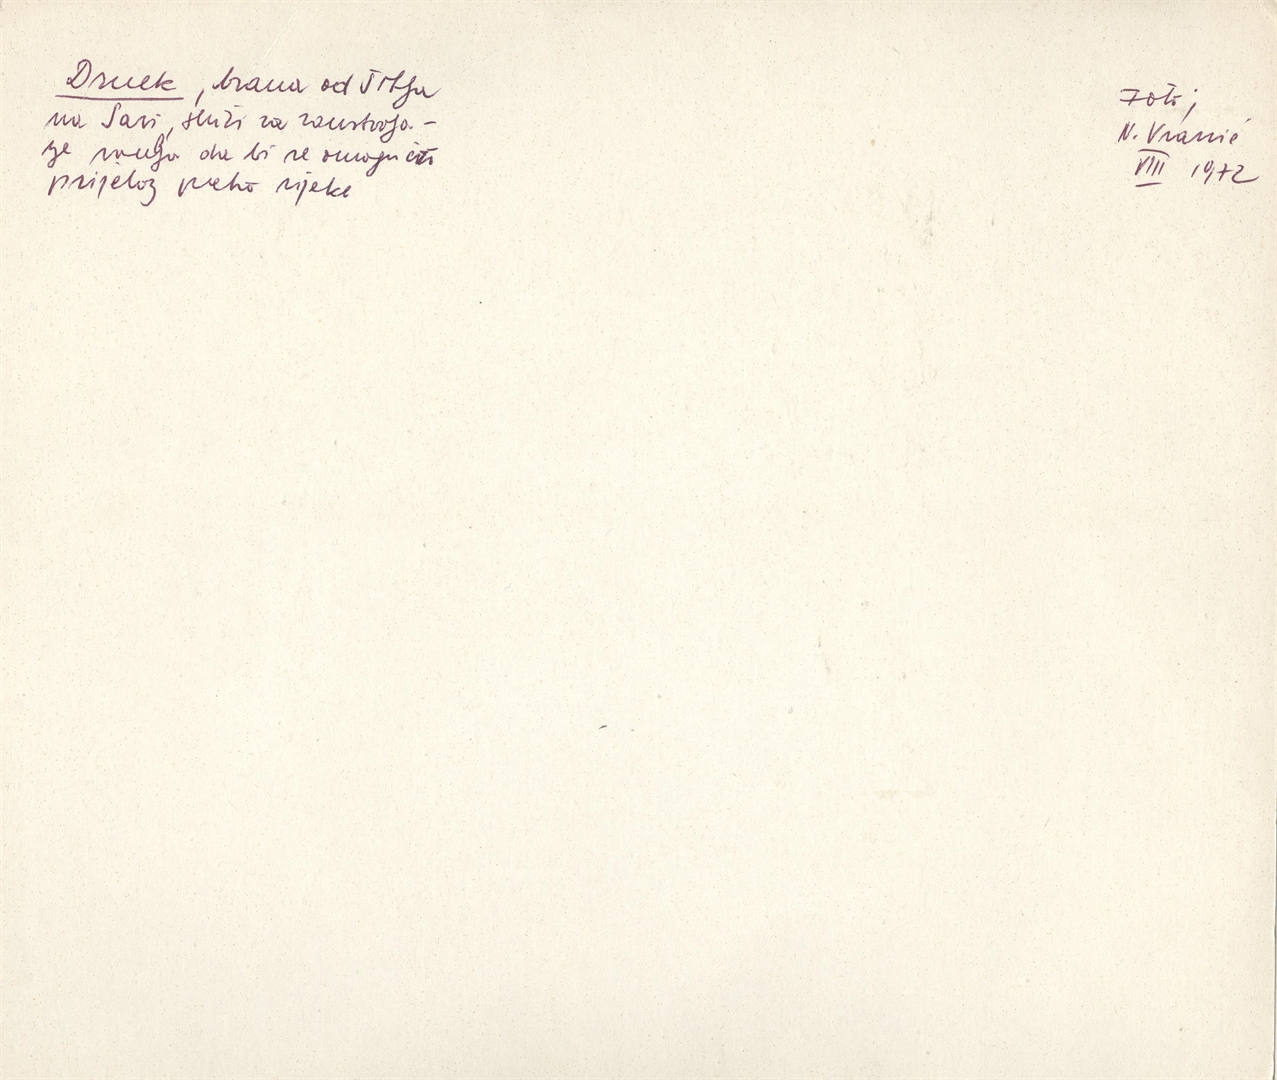 Drnek, brana od šiblja
na Savi, služi za zaustavlja-
nje mulja da bi se omogućio
prijelaz preko rijeke
Foto;
N. Vranić
VIII 1972